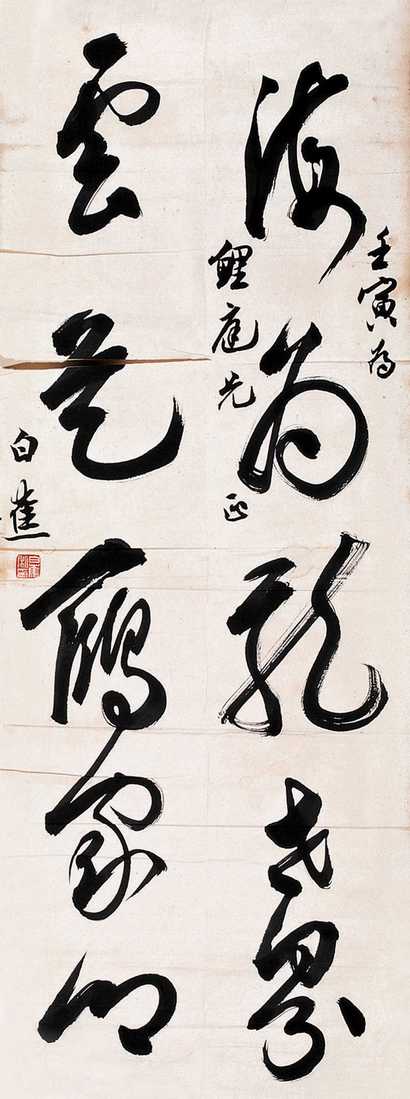 壬寅為
海為龍世界
鯉庭兄正
雲是鶴家鄉
白蕉